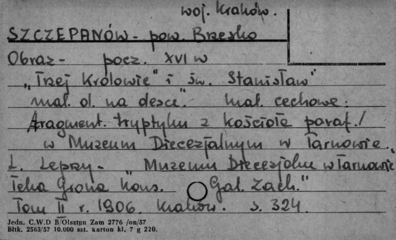 woj. Kraków.
SZCZEPANÓW - pow. Brzesko
Obraz - pocz. XVI w
"Trzej Królowie" i św. Stanisław"
mal. ol. na desce." mal. cechowe.
fragment. tryptyku z kościoła paraf./
w Muzeum Diecezjalnym w Tarnowie.
L. Lepszy - Muzeum Diecezjalne w Tarnowie
Teka Grona Kons. Gal. Zach."
Tom II r. 1906. Kraków. s. 324.
Jedn. C.W.D B/Olsztyn Zam 2776 /on/57
Bltk. 2563/57 10.000 szt. karton kl. 7 g 220.